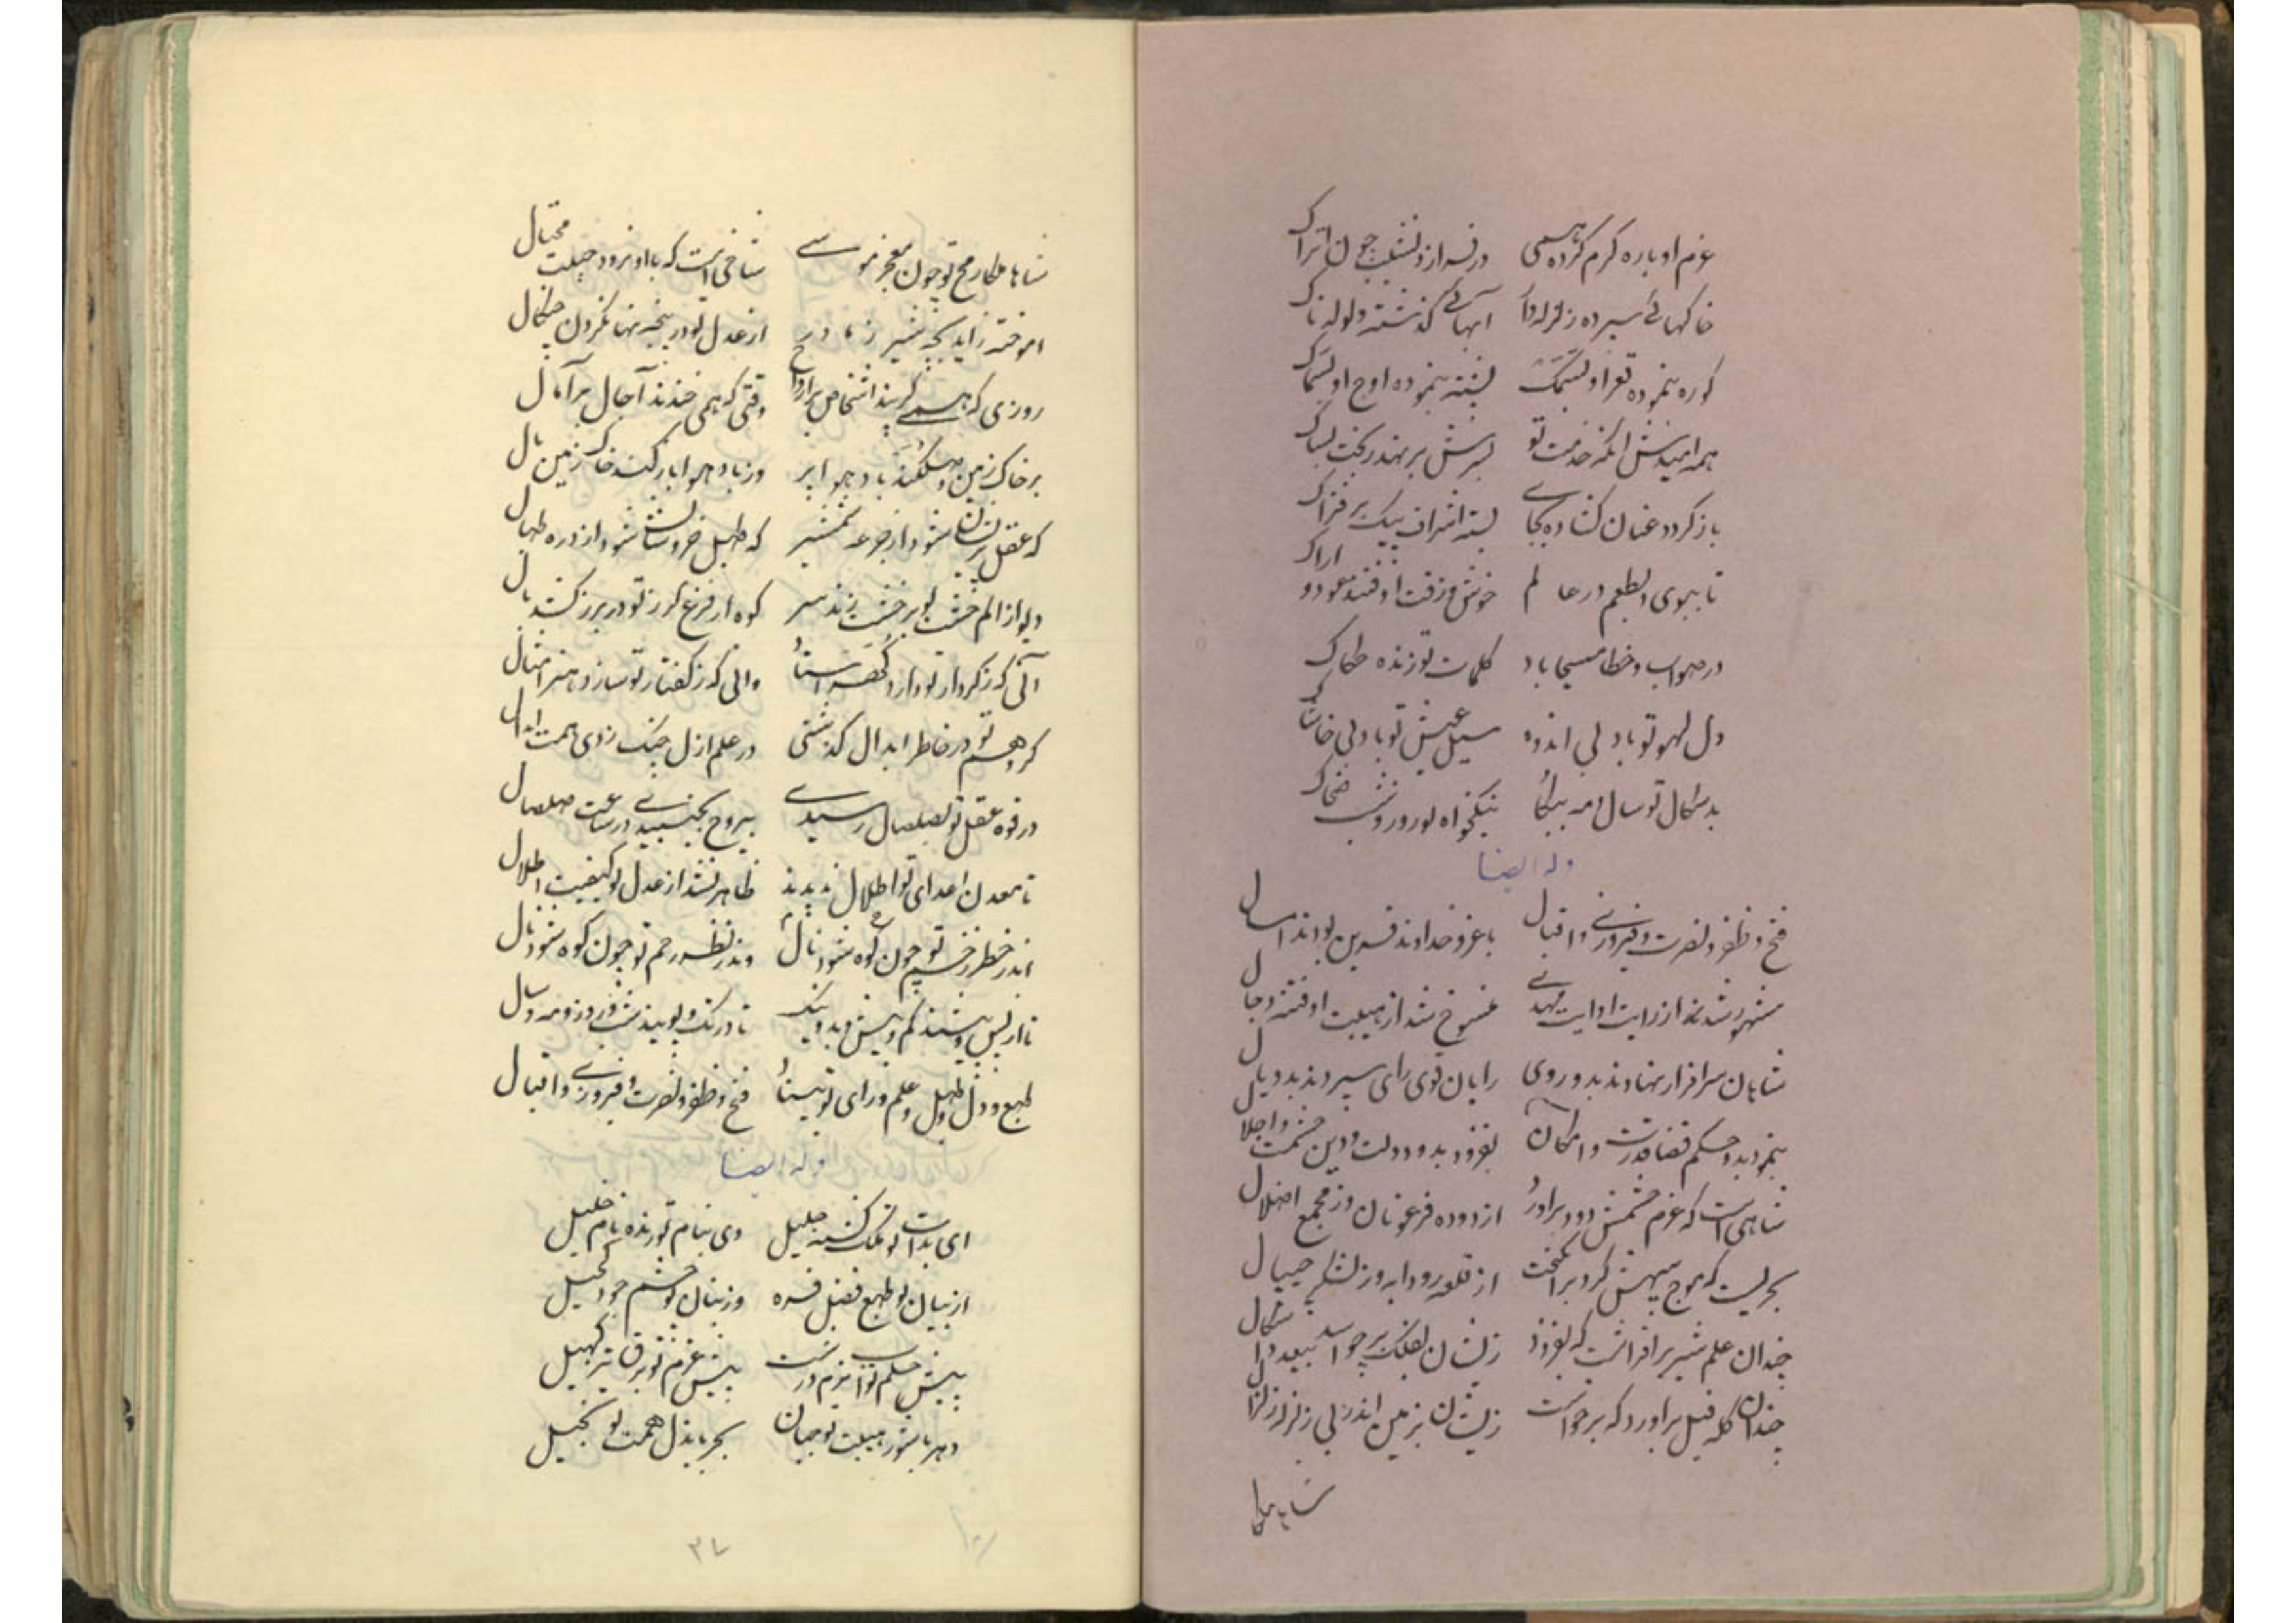 عزم او باره کرم کرده همی در فراز و نشیب چون اتراک
خاکهائی سپرده زلزله دار آبهائی گذشته ولوله ناک
کوره بنموده قعر او بسمک پشته بنموده اوج او بسماک
همه امیدش آنکه خدمت تو بسرش بر نهد ز بخت بساک
باز گردد عنان گشاده بجای بسته اشراف بیک بر فتراک
تا ببوی و بطعم در عالم خوش و زفت اوفتند عود و اراک
در صواب و خطا مسیحا باد کلمات تو زنده حکاک
دل لهو تو باد بی اندوه سبل عیش تو باد بی خاشاک
بدسگال تو سال و مه ببکا نیکخواه تو روز و شب ضحاک
وله ایضا
فتح و ظفر و نصرت و فیروزی و اقبال با عز خداوند قرین بودند امسال
مشهور شد از رایت او آیت مهدی منسوخ شد از هیبت او فتنه دجال
شاهان سرافراز نهادند بدو روی رایان قوی رای سپردند بدو یال
بنمود بدو حکم قضا قدرت و امکان بفزود بدو دولت و دین حشمت و اجلال
شاهی است که عزم حشمش دود برآورد از دوده فرعونان وز مجمع اضلال
بحریست که موج سپهش گرد برانگیخت از قلعه رودابه وز لشکر جیپال
چندان علم شیر برافراشت که بفزود زیشان بفلک بر چو اسد بیعدد اشکال
چندان گله فیل برآورد که برخواست زیشان بزمین اندر بی زلزله زلزال
شاها ملکا
شاها ملکا رمح تو چون معجز موسی شاخی است که با او نرود حیلت محتال
آموخته زاید بچه شیر ز مادر از عدل تو در پنجه نهان کردن چنگال
روزی که همی گریند اشخاص بر ارواح وقتی که همی خندند آجال بر آمال
بر خاک زمین حمله کند باد هوا بر وز باد هوا بار کند خاک زمین بال
که عقل پریشان شود از جرعه شمشیر که طبل خروشان شود از دره طبال
دیو از الم خشت تو بر خشت زند سر کوه از فزع گرز تو در برز کشد یال
آنی که ز کردار تو دارد گهر استاد وانی که ز گفتار تو سازد هنر امثال
گر وهم تو در خاطر ابدال گذشتی در علم ازل چنگ زدی همت ابدال
در قوه عقل تو بصلصال رسیدی بیروح بجنبیدی در ساعت صلصال
تا معدن اعدای تو اطلال ندیدند ظاهر نشد از عدل تو کیفیت اطلال
اندر خطر زخم تو چون کوه شود نال وندر نظر رحم تو چون کوه شود نال
تا از پس و پیشند کم و بیش و بد و نیک تا در تک و پویند شب و روز و مه و سال
طبع و دل و طبل و علم و رای تو بیناد فتح و ظفر و نصرت و فیروزی و اقبال
وله ایضا
ای بذات تو ملک گشته جلیل وی بنام تو زنده نام خلیل
از بیان تو طبع فضل فره وز بنان تو چشم جود کحیل
پیش حلم تو خاک نرم درشت پیش عزم تو برق تیز کهیل
دهر با شور هیبت تو جبان بحر با بذل همت تو بخیل
۳۷